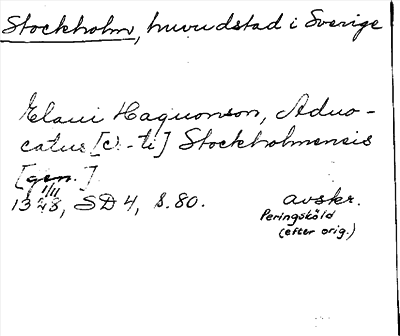 Stockholm, huvudstad i Sverige
Elaui Haquonson, Advo-
catus [c: -ti] Stockholmensis
[gen.]
1/11
1328, SD 4, s. 80.
avskr.
Peringsköld
(efter orig.)